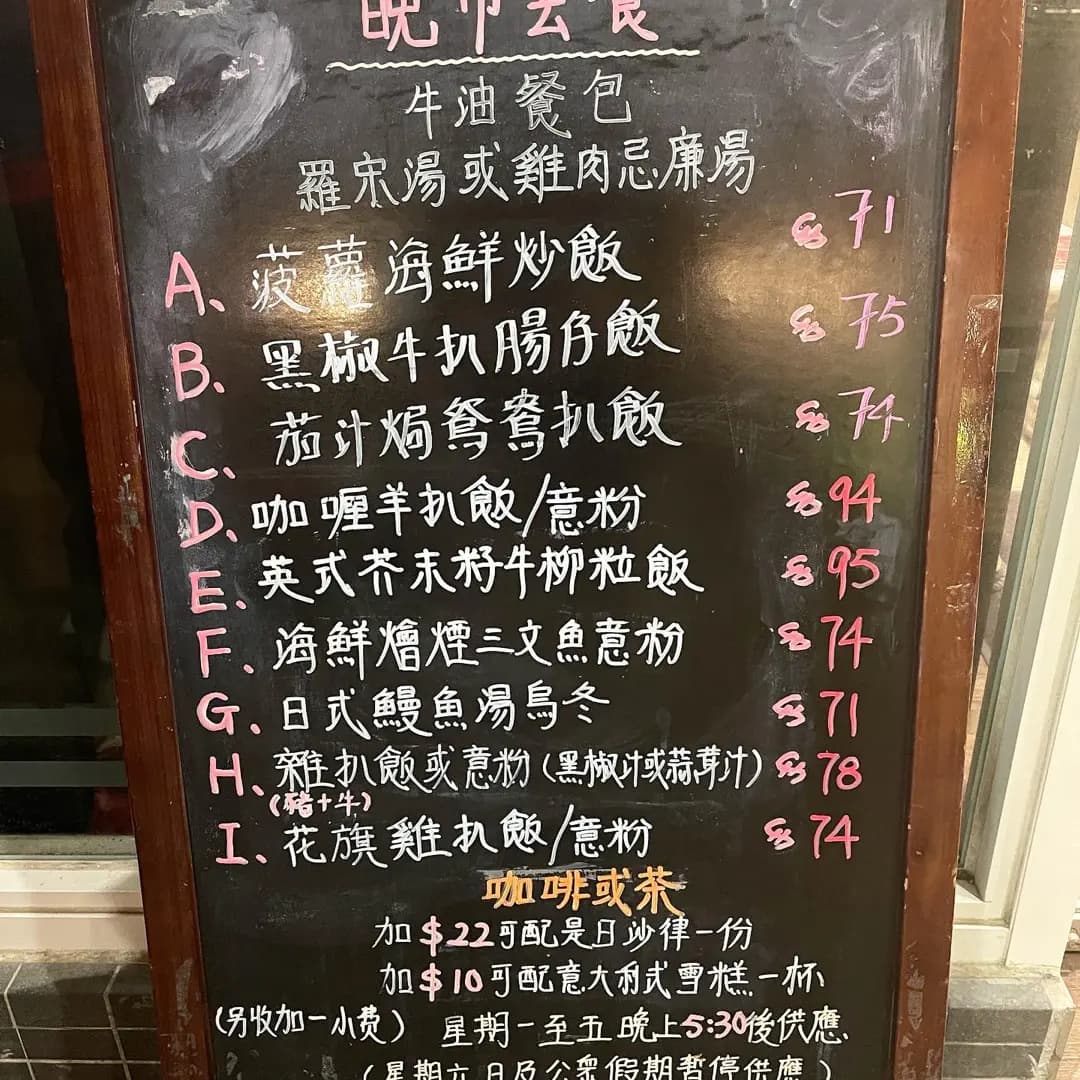 晚市套餐
牛油餐包
羅宋湯或雞肉忌廉湯
A. 菠蘿海鮮炒飯 $71
B. 黑椒牛扒腸仔飯 $75
C. 茄汁焗鴛鴦扒飯 $74
D. 咖喱羊扒飯/意粉 $94
E. 英式芥末籽牛柳粒飯 $95
F. 海鮮燴煙三文魚意粉 $74
G. 日式鰻魚湯烏冬 $71
H. 雜扒飯或意粉(黑椒汁或蒜茸汁) $78
(豬+牛)
I. 花旗雞扒飯/意粉 $74
咖啡或茶
加$22可配是日沙律一份
加$10可配意大利式雪糕一杯
(另收加一小費) 星期一至五晚上5:30後供應.
(星期六日及公眾假期暫停供應)